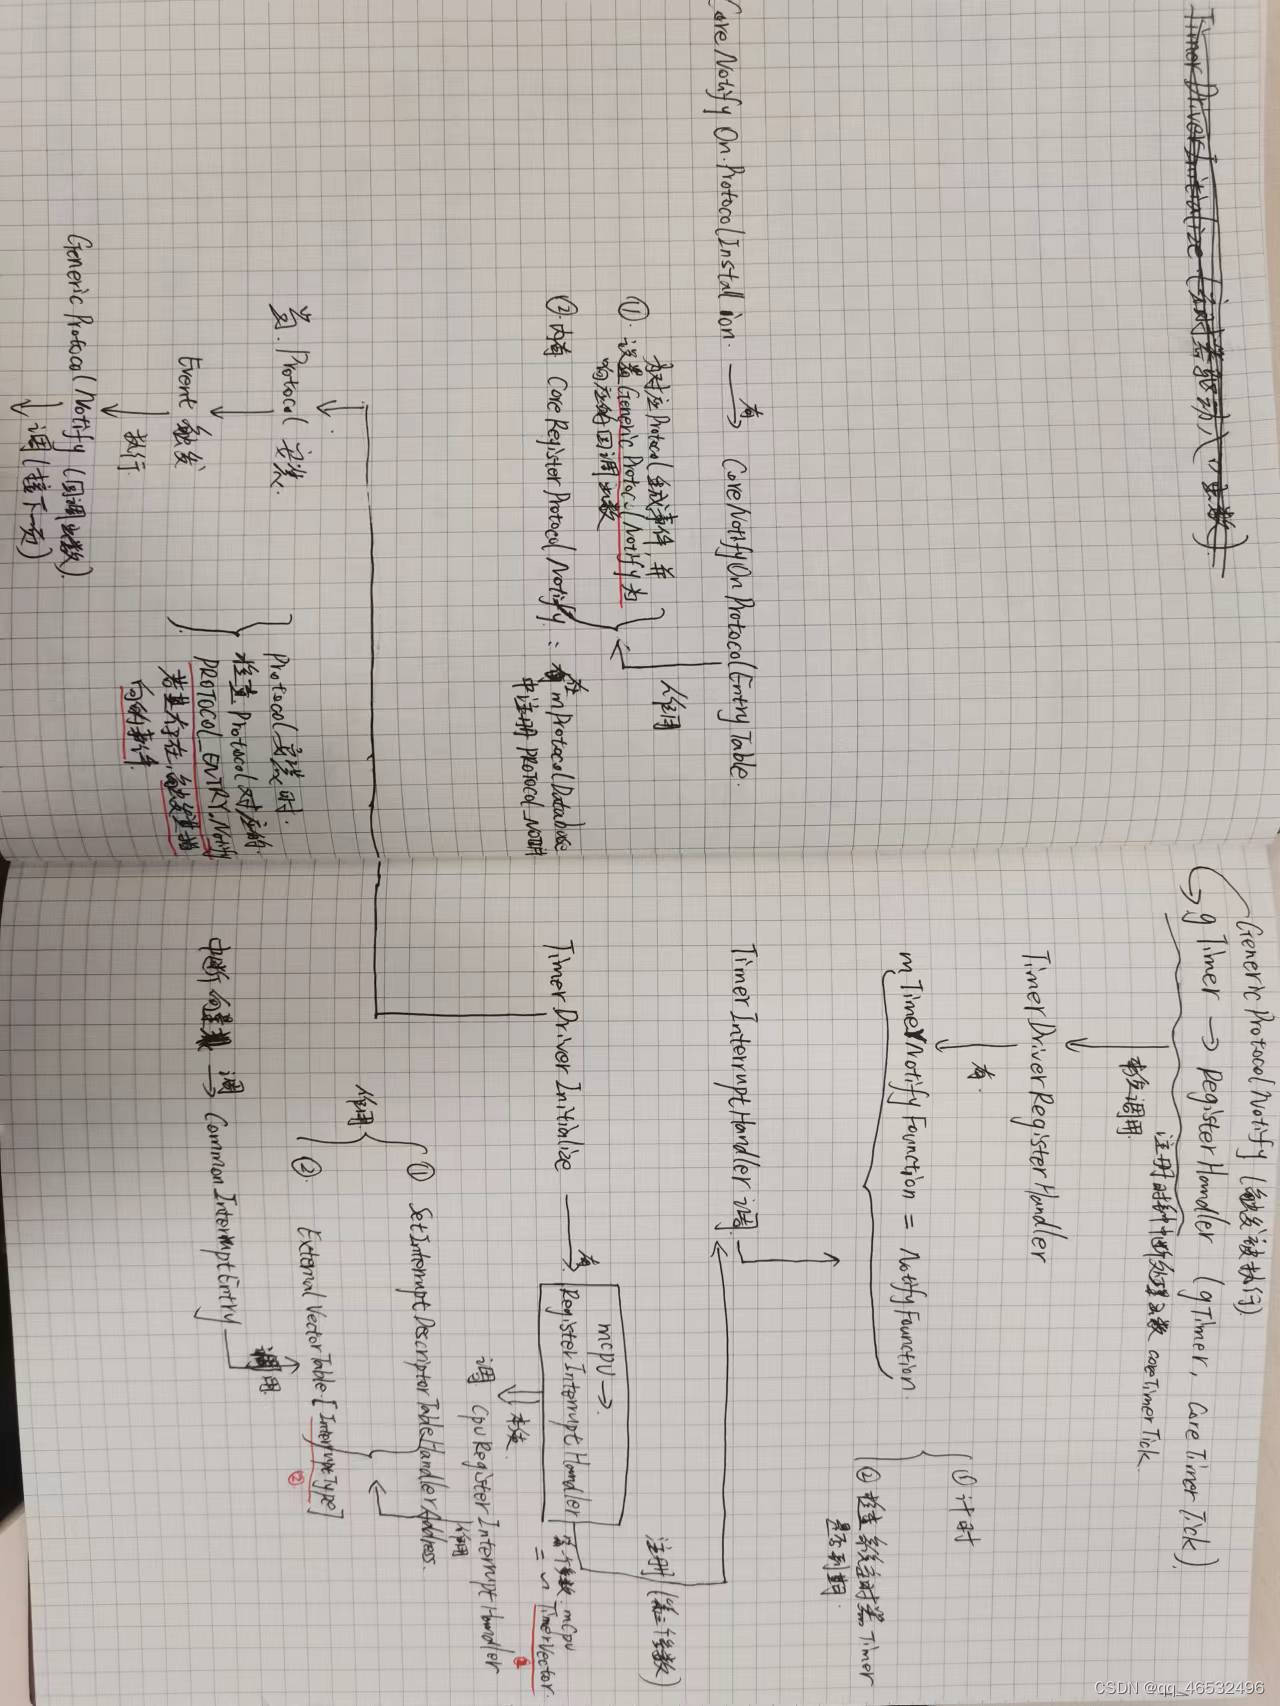 TimerDriverInitialize (定时器驱动入口函数).
CoreNotifyOnProtocolInstallion. 有 CoreNotifyOnProtocolEntryTable.
作用
① 为对应Protocol生成事件,并
设置GenericProtocolNotify为
响应的回调函数
② 内有 CoreRegisterProtocolNotify: 在mProtocolDatabase
中注册PROTOCOL_NOTIFY
Protocol 安装.
Event 触发
执行
GenericProtocolNotify (回调函数).
调(接下一页)
Protocol安装时.
检查Protocol对应的
PROTOCOL_ENTRY.Notify
若其存在,触发其指
向的事件.
GenericProtocolNotify (触发被执行)
gTimer → RegisterHandler (gTimer, CoreTimerTick).
注册时钟中断处理函数 CoreTimerTick.
本质调用.
TimerDriverRegisterHandler
有.
mTimerNotifyFounction = NotifyFounction.
① 计时
② 检查系统定时器Timer
是否到期.
TimerInterruptHandler 调.
注册(第三个参数)
TimerDriverInitialize 有
mCPU →.
RegisterInterruptHandler
第一个参数 mCpu
二 ~ TimerVector. ②
本质.
调 CpuRegisterInterruptHandler
作用
作用.
① SetInterruptDescriptorTableHandlerAddress.
② ExternalVectorTable[InterruptType]
②
中断向量表 调 → CommonInterruptEntry
调用.
CSDN @qq_46532496